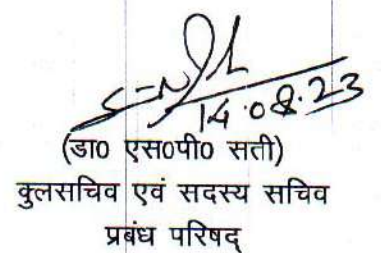 14.08.23
(डा० एस०पी० सती)
कुलसचिव एवं सदस्य सचिव
प्रबंध परिषद्